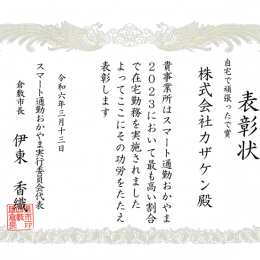 表彰状
自宅で頑張ったで賞
株式会社カザケン殿
貴事業所はスマート通勤おかやま
2023において最も高い割合
で在宅勤務を実施されました
よってここにその功労をたたえ
表彰します
令和六年三月十三日
スマート通勤おかやま実行委員会代表
倉敷市長
伊東 香織